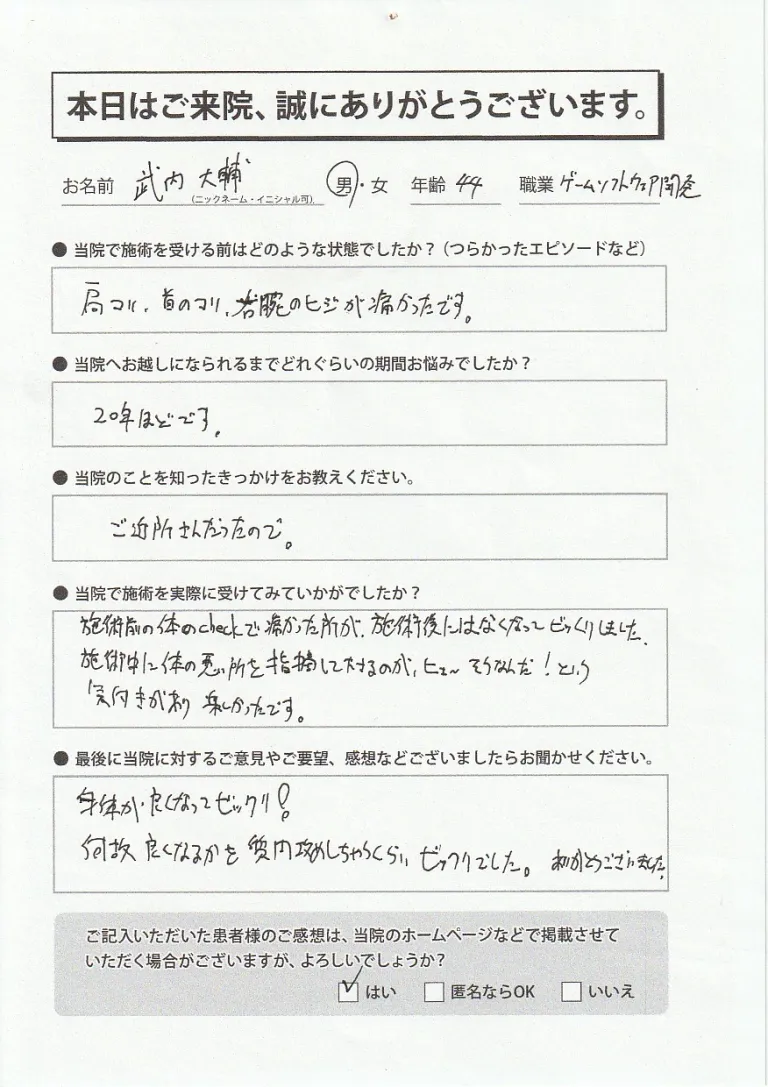 本日はご来院、誠にありがとうございます。
お名前 武内 大輔 (ニックネーム・イニシャル可) 男・女 年齢 44 職業 ゲームソフトウェア開発
● 当院で施術を受ける前はどのような状態でしたか？（つらかったエピソードなど）
肩コリ、首のコリ、右腕のヒジが痛かったです。
● 当院へお越しになられるまでどれぐらいの期間お悩みでしたか？
20年ほどです。
● 当院のことを知ったきっかけをお教えください。
ご近所さんだったので。
● 当院で施術を実際に受けてみていかがでしたか？
施術前の体のcheckで痛かった所が、施術後にはなくなってビックリしました。
施術中に体の悪い所を指摘して下さるのが、ヒェ〜そうなんだ！という
気付きがあり 楽しかったです。
● 最後に当院に対するご意見やご要望、感想などございましたらお聞かせください。
身体が良くなってビックリ！
何故良くなるかを質問攻めしちゃうくらいビックリでした。ありがとうございました。
ご記入いただいた患者様のご感想は、当院のホームページなどで掲載させて
いただく場合がございますが、よろしいでしょうか？
はい 匿名ならOK いいえ